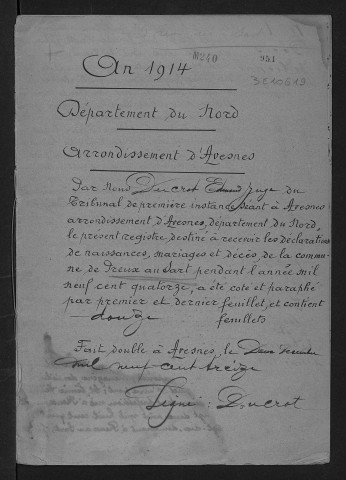 An 1914
951
3E10619
Département du Nord
Arrondissement d'Avesnes
Par Nous Ducrot Edmond Juge du
Tribunal de première instance séant à Avesnes
arrondissement d'Avesnes, Département du Nord,
le présent registre destiné à recevoir les déclarations
de naissances, mariages et décès de la commu-
ne de Preux au Sart pendant l'année mil
neuf cent quatorze, a été coté et paraphé
par premier et dernier feuillet, et contient
douze feuillets
Fait double à Avesnes, le Deux Décembre
mil neuf cent treize
Signé : Ducrot